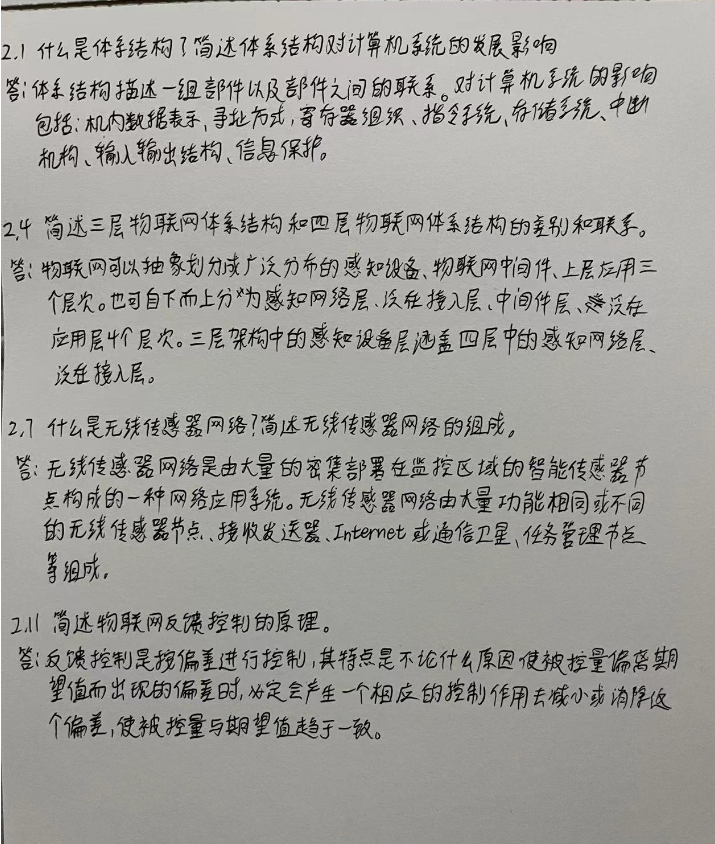 2.1 什么是体系结构?简述体系结构对计算机系统的发展影响
答:体系结构描述一组部件以及部件之间的联系。对计算机系统的影响
包括:机内数据表示,寻址方式,寄存器组织、指令系统,存储系统、中断
机构、输入输出结构、信息保护。
2.4 简述三层物联网体系结构和四层物联网体系结构的差别和联系。
答:物联网可以抽象划分成广泛分布的感知设备、物联网中间件、上层应用三
个层次。也可自下而上分为感知网络层、泛在接入层、中间件层、泛在
应用层4个层次。三层架构中的感知设备层涵盖四层中的感知网络层、
泛在接入层。
2.7 什么是无线传感器网络?简述无线传感器网络的组成。
答:无线传感器网络是由大量的密集部署在监控区域的智能传感器节
点构成的一种网络应用系统。无线传感器网络由大量功能相同或不同
的无线传感器节点、接收发送器、Internet或通信卫星、任务管理节点
等组成。
2.11 简述物联网反馈控制的原理。
答:反馈控制是按偏差进行控制,其特点是不论什么原因使被控量偏离期
望值而出现的偏差时,必定会产生一个相应的控制作用去减小或消除这
个偏差,使被控量与期望值趋于一致。